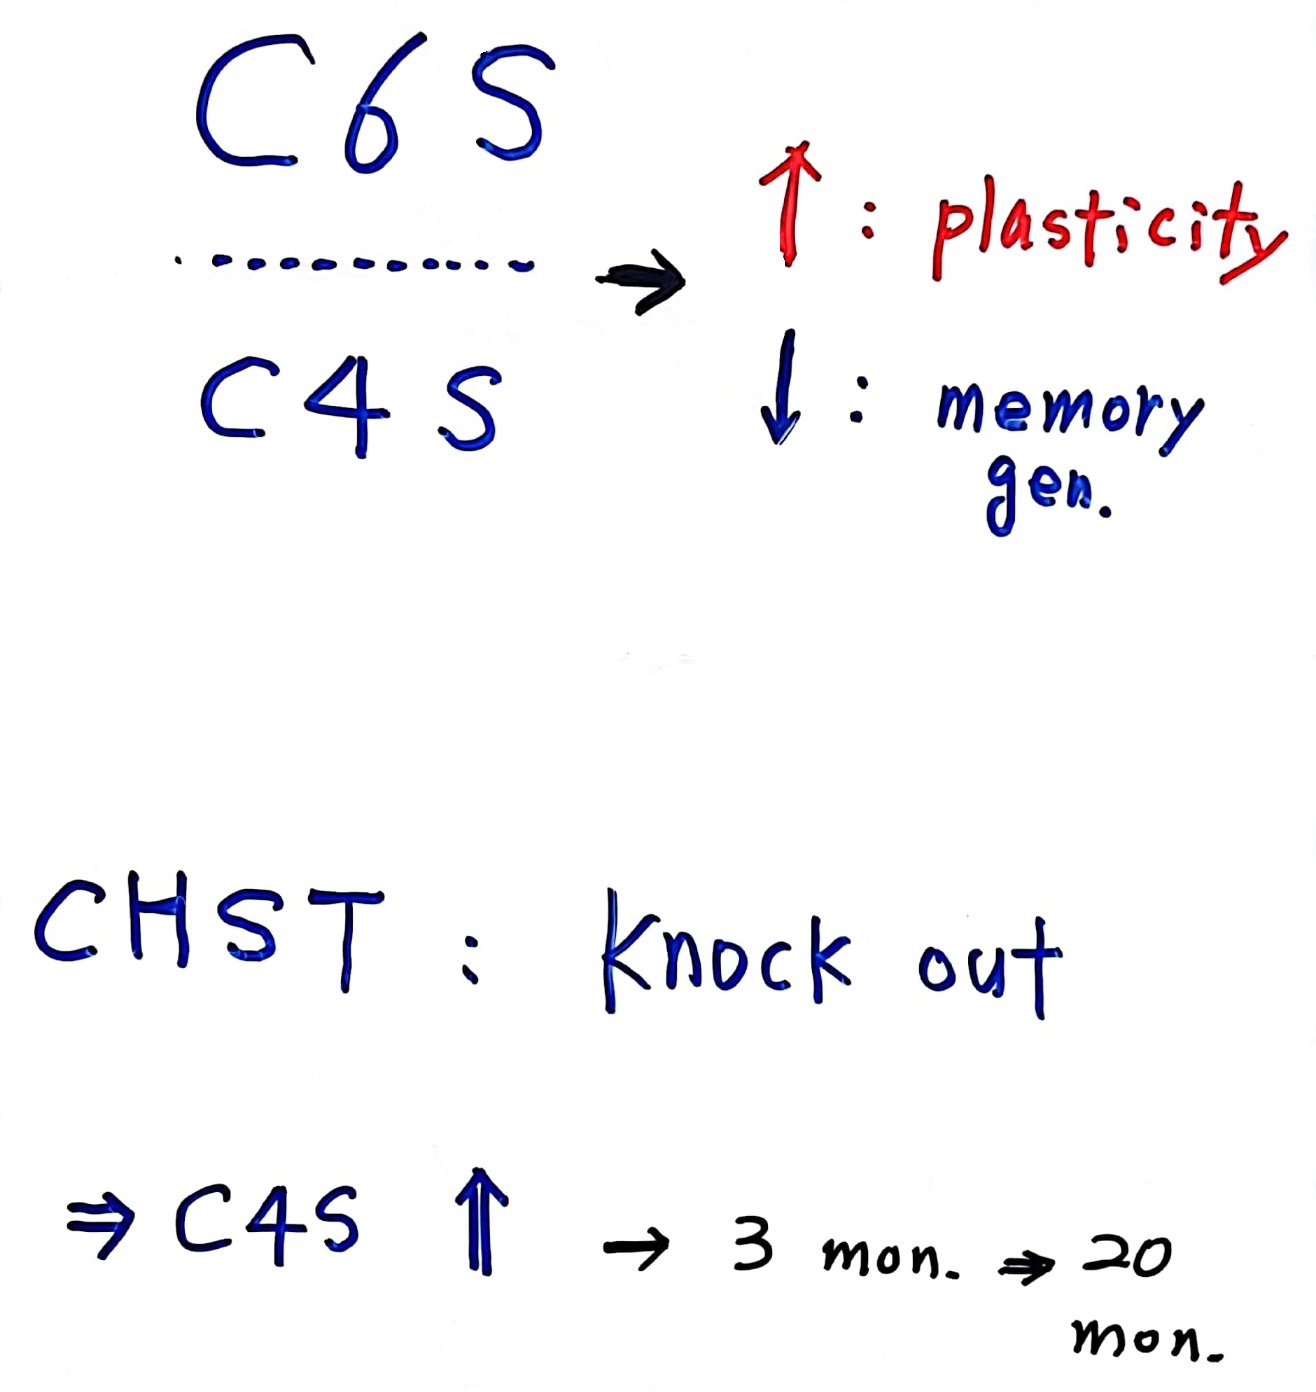 C6S
C4S
→ ↑ : plasticity
↓ : memory
gen.
CHST : Knock out
⇒ C4S ⇑ → 3 mon. ⇒ 20
mon.